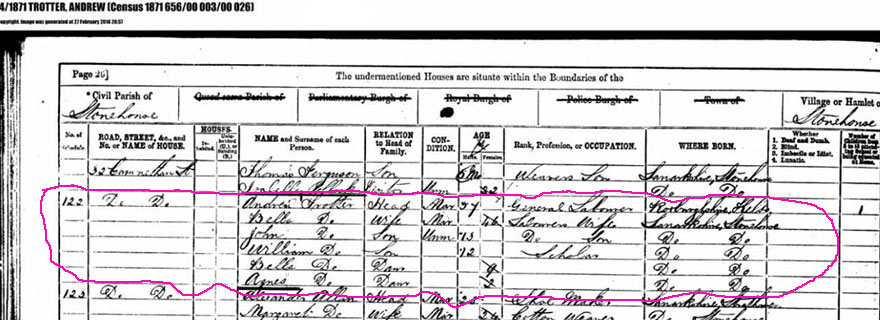 4/1871 TROTTER, ANDREW (Census 1871 656/00 003/00 026)
copyright. Image was generated at 27 February 2014 20:57
Page 26] The undermentioned Houses are situate within the Boundaries of the
Civil Parish of Quoad sacra Parish of Parliamentary Burgh of Royal Burgh of Police Burgh of Town of Village or Hamlet o
Stonehouse Stonehouse
No. of Schedule ROAD, STREET, &c., and No. or NAME of HOUSE. HOUSES. Inhabited. NAME and Surname of each Person. RELATION to Head of Family. CONDITION. AGE Males. Females. Rank, Profession, or OCCUPATION. WHERE BORN. Whether 1. Deaf and Dumb. 2. Blind. 3. Imbecile or Idiot. 4. Lunatic.
32 Camnethan St Thomas Ferguson Son Weavers Son Lanarkshire, Stonehouse
Isabella Pollock Unm 32 Do Do
122 Do Do Andrew Trotter Head Mar General Laborer Roxburghshire, Kelso 1
Bella Do Wife Mar 46 Laborers Wife Lanarkshire, Stonehouse
John Do Son Unm Do Son Do Do
William Do Son 12 Scholar Do Do
Bella Do Daur 9 Do Do
Agnes Do Daur 2 Do Do
123 Do Do Alexander Allan Head Mar Shoe Maker Lanarkshire
Margaret Do Wife Mar Cotton Weaver Do Stonehouse